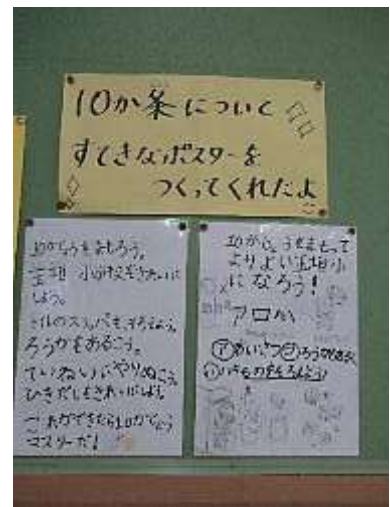 10か条について
すてきなポスターを
つくってくれたよ
10かじょうをまもろう。
玉垣小学校をきれいに
しよう。
トイレのスリッパをそろえよう。
ろうかをあるこう。
ていねいにやりぬこう。
ひきだしをきれいにしよう
これができたら10かじょう
マスターだ!
10かじょうをまもって
よりよい玉垣小
になろう!
アロハ
アあいさつロろうかあるく
ハはきものをそろえよう